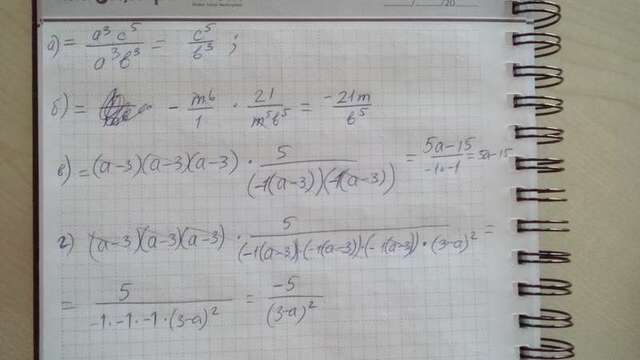 а) = a³c⁵ / a³b³ = c⁵ / b³ ;
б) = - m6 / 1 · 21 / m⁵b⁵ = -21m / b⁵
в) = (a-3)(a-3)(a-3) · 5 / (-1(a-3))(-1(a-3)) = 5a-15 / -1·-1 = 5a-15
г) (a-3)(a-3)(a-3) · 5 / (-1(a-3)·(-1(a-3))·(-1(a-3))·(3-a)² =
= 5 / -1·-1·-1·(3-a)² = -5 / (3-a)²